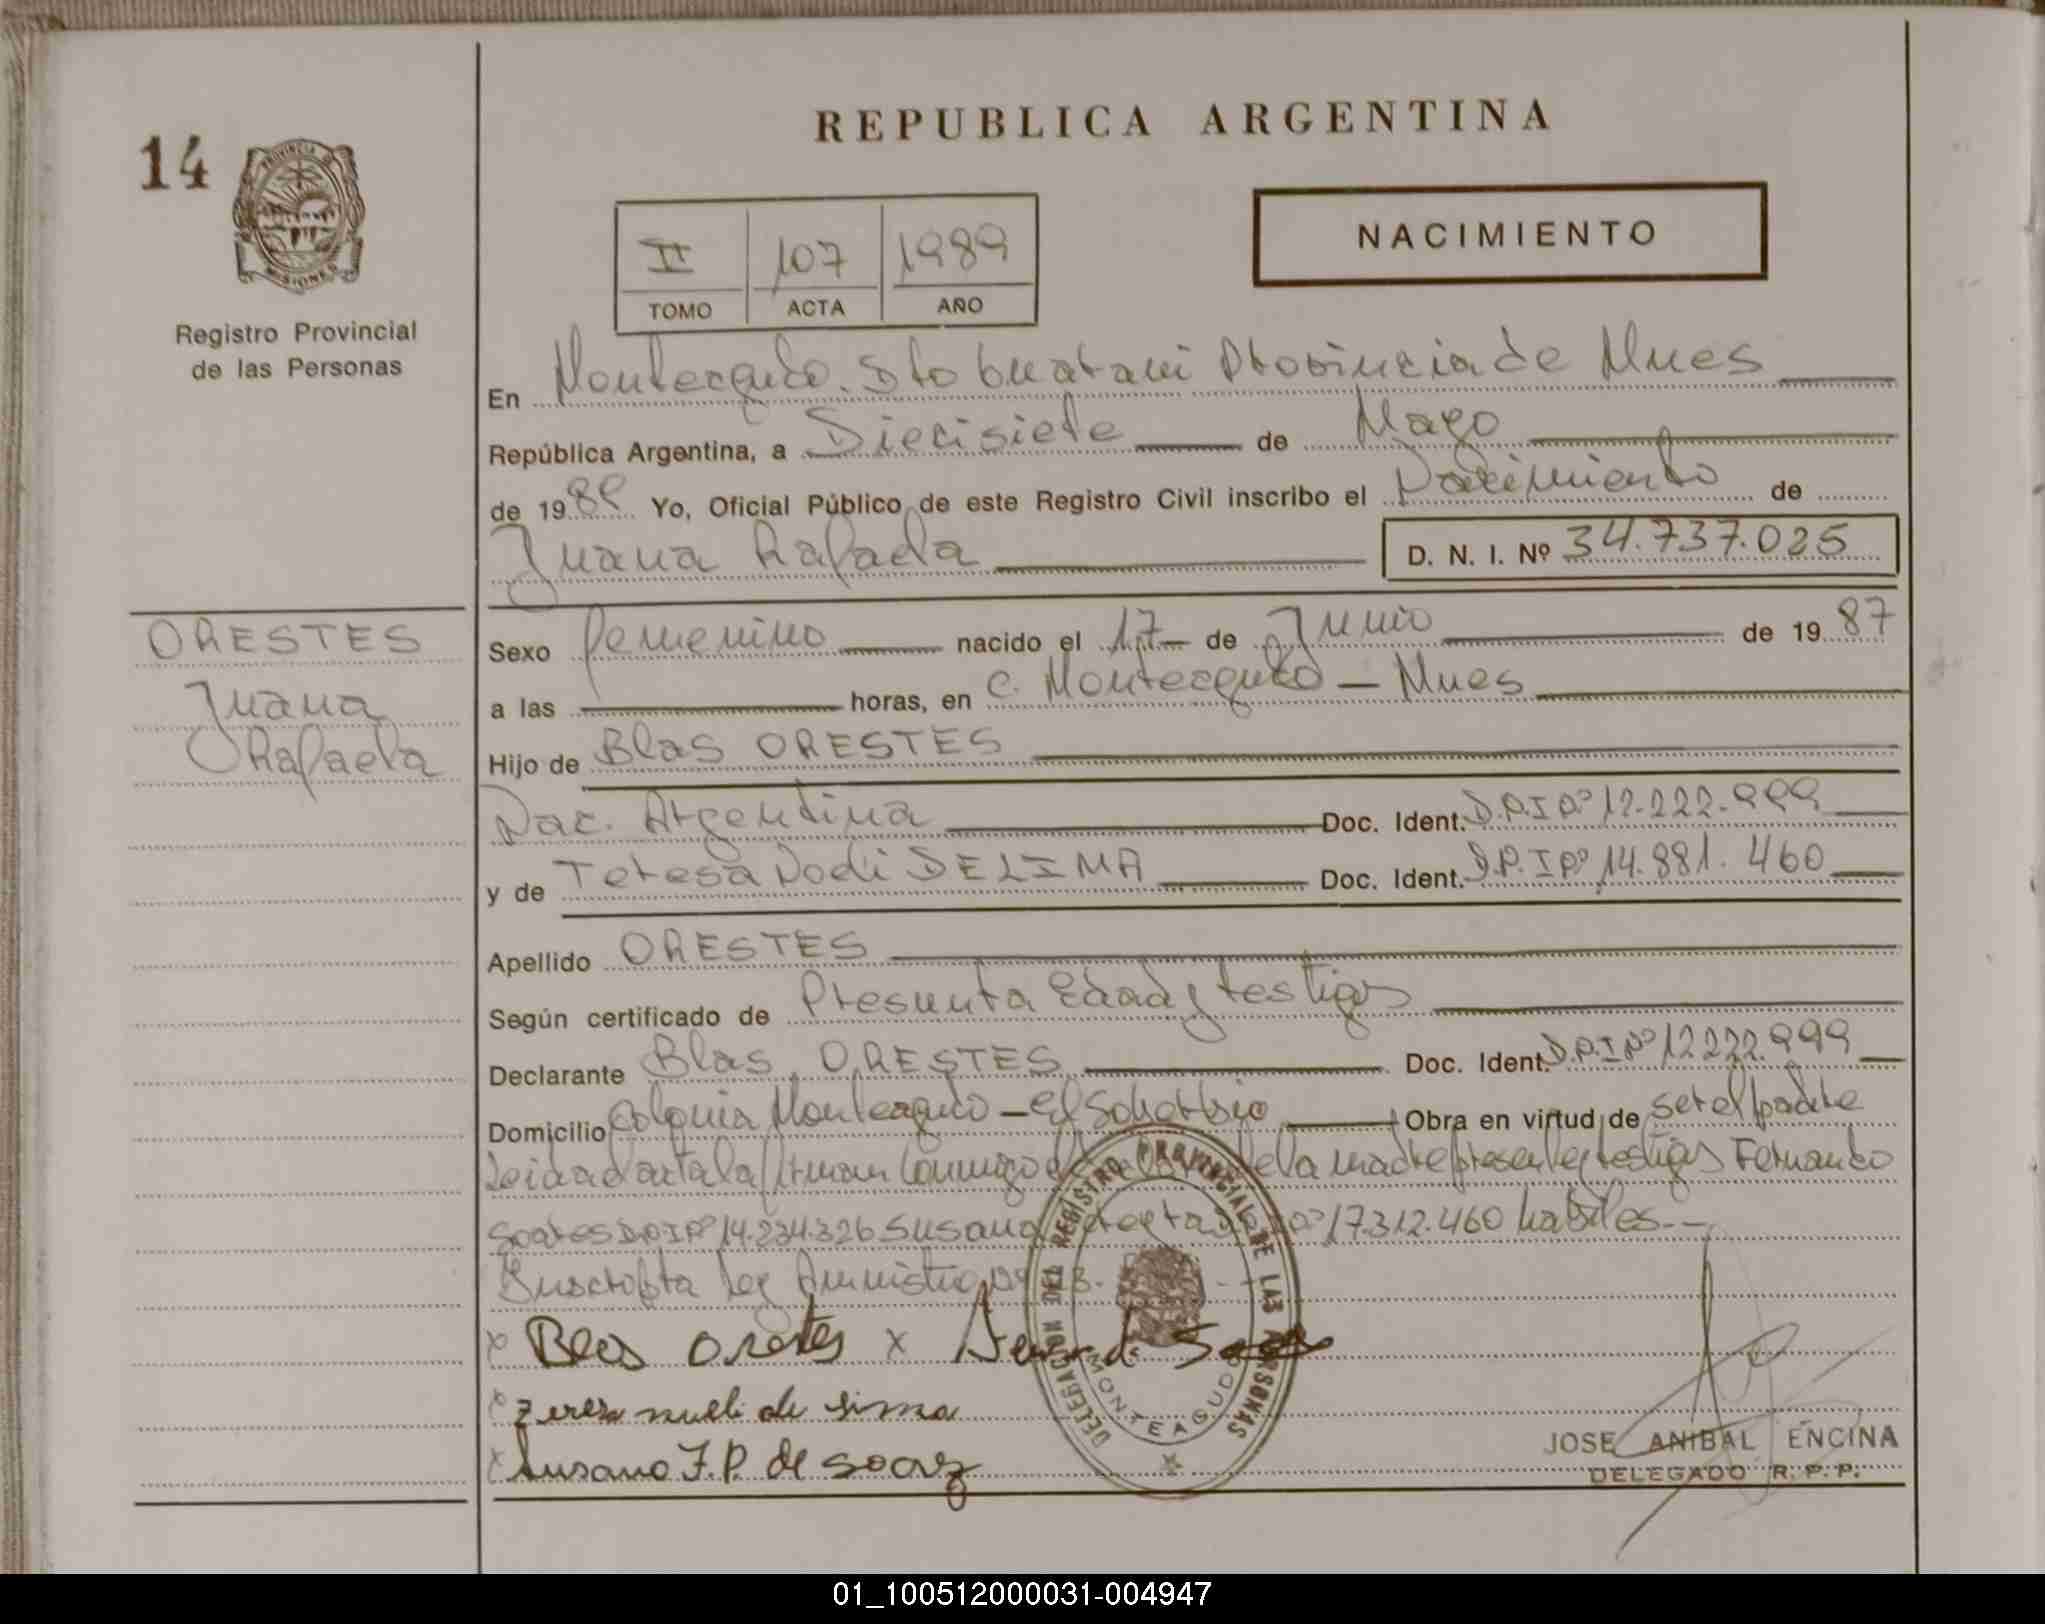 REPUBLICA ARGENTINA
14
PROVINCIA DE
MISIONES
Registro Provincial
de las Personas
II 107 1989
TOMO ACTA AÑO
NACIMIENTO
En Monteagudo. Dto Guarani Provincia de Mnes
República Argentina, a Diecisiete de Mayo
de 1989 Yo, Oficial Público de este Registro Civil inscribo el Nacimiento de
Juana Rafaela D. N. I. Nº 34.737.025
ORESTES
Juana
Rafaela
Sexo femenino nacido el 17 de Junio de 19 87
a las horas, en C. Monteagudo - Mnes
Hijo de Blas ORESTES
Nac. Argentina Doc. Ident. D.N.I Nº 12.222.999
y de Teresa Noeli DE LIMA Doc. Ident. D.N.I Nº 14.881.460
Apellido ORESTES
Según certificado de Presunta Edad y testigos
Declarante Blas ORESTES Doc. Ident. D.N.I Nº 12.222.999
Domicilio Colonia Monteagudo - El Soberbio Obra en virtud de ser el padre
de la madre presente y testigos Fernando
Soares D.N.I Nº 14.234.326 Susana Nº 17.312.460 habiles.-
Inscripta ley Amnistia
x Blas Orestes x
x Teresa nueli de lima
x Susana F.P. de soarez
DELEGACION DEL REGISTRO PROVINCIAL DE LAS PERSONAS
MONTEAGUDO
JOSE ANIBAL ENCINA
DELEGADO R. P. P.
01_100512000031-004947